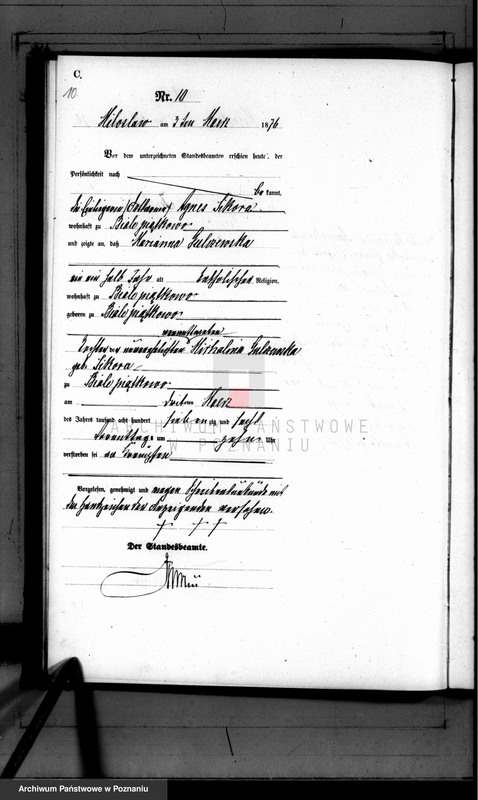 C.
10.
Nr. 10
Miloslaw am 3ten Maerz 1876
Vor dem unterzeichneten Standesbeamten erschien heute, der
Persönlichkeit nach
bekannt,
die Agnes Sikora
wohnhaft zu Bialepiątkowo
und zeigte an, daß Marianna
ein ein halb Jahr alt katholischer Religion,
wohnhaft zu Bialepiątkowo
geboren zu Bialepiątkowo
verwittweten
Tochter der verehelichten Michalina
geb. Sikora
zu Bialepiątkowo
am dritten Maerz
des Jahres tausend acht hundert siebenzig und sechs
Vormittags um zehn Uhr
verstorben sei an Krämpfen
Vorgelesen, genehmigt und wegen Schreibensunkunde mit
den Handzeichen der Anzeigenden versehen.
+ + +
Der Standesbeamte.
ARCHIWUM PAŃSTWOWE
W POZNANIU
Archiwum Państwowe w Poznaniu